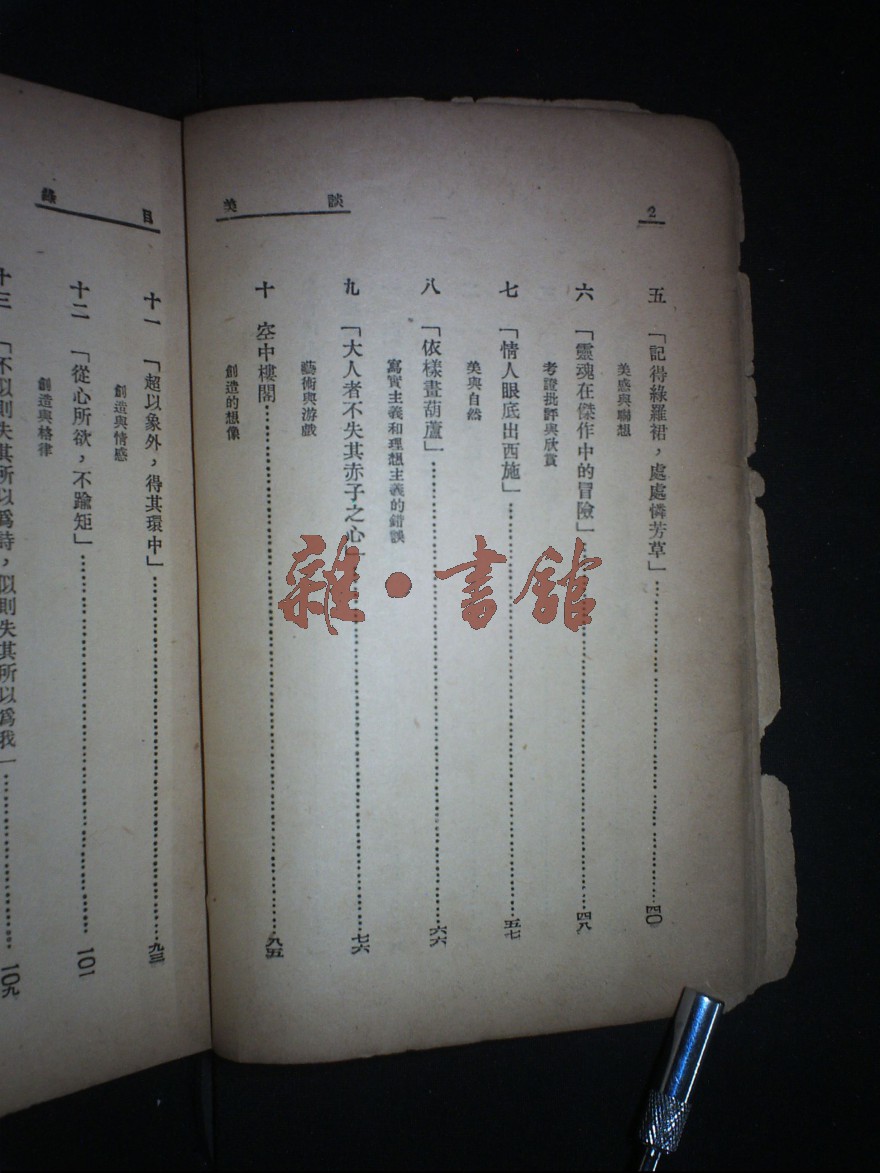 2
談美
五 「記得綠羅裙，處處憐芳草」……四〇
美感與聯想
六 「靈魂在傑作中的冒險」……四八
考證批評與欣賞
七 「情人眼底出西施」……五七
美與自然
八 「依樣畫葫蘆」……六六
寫實主義和理想主義的錯誤
九 「大人者不失其赤子之心」……七六
藝術與游戲
十 空中樓閣……八五
創造的想像
目錄
十一 「超以象外，得其環中」……九三
創造與情感
十二 「從心所欲，不踰矩」……一〇一
創造與格律
十三 「不似則失其所以爲詩，似則失其所以爲我」……一〇九
雜·書館